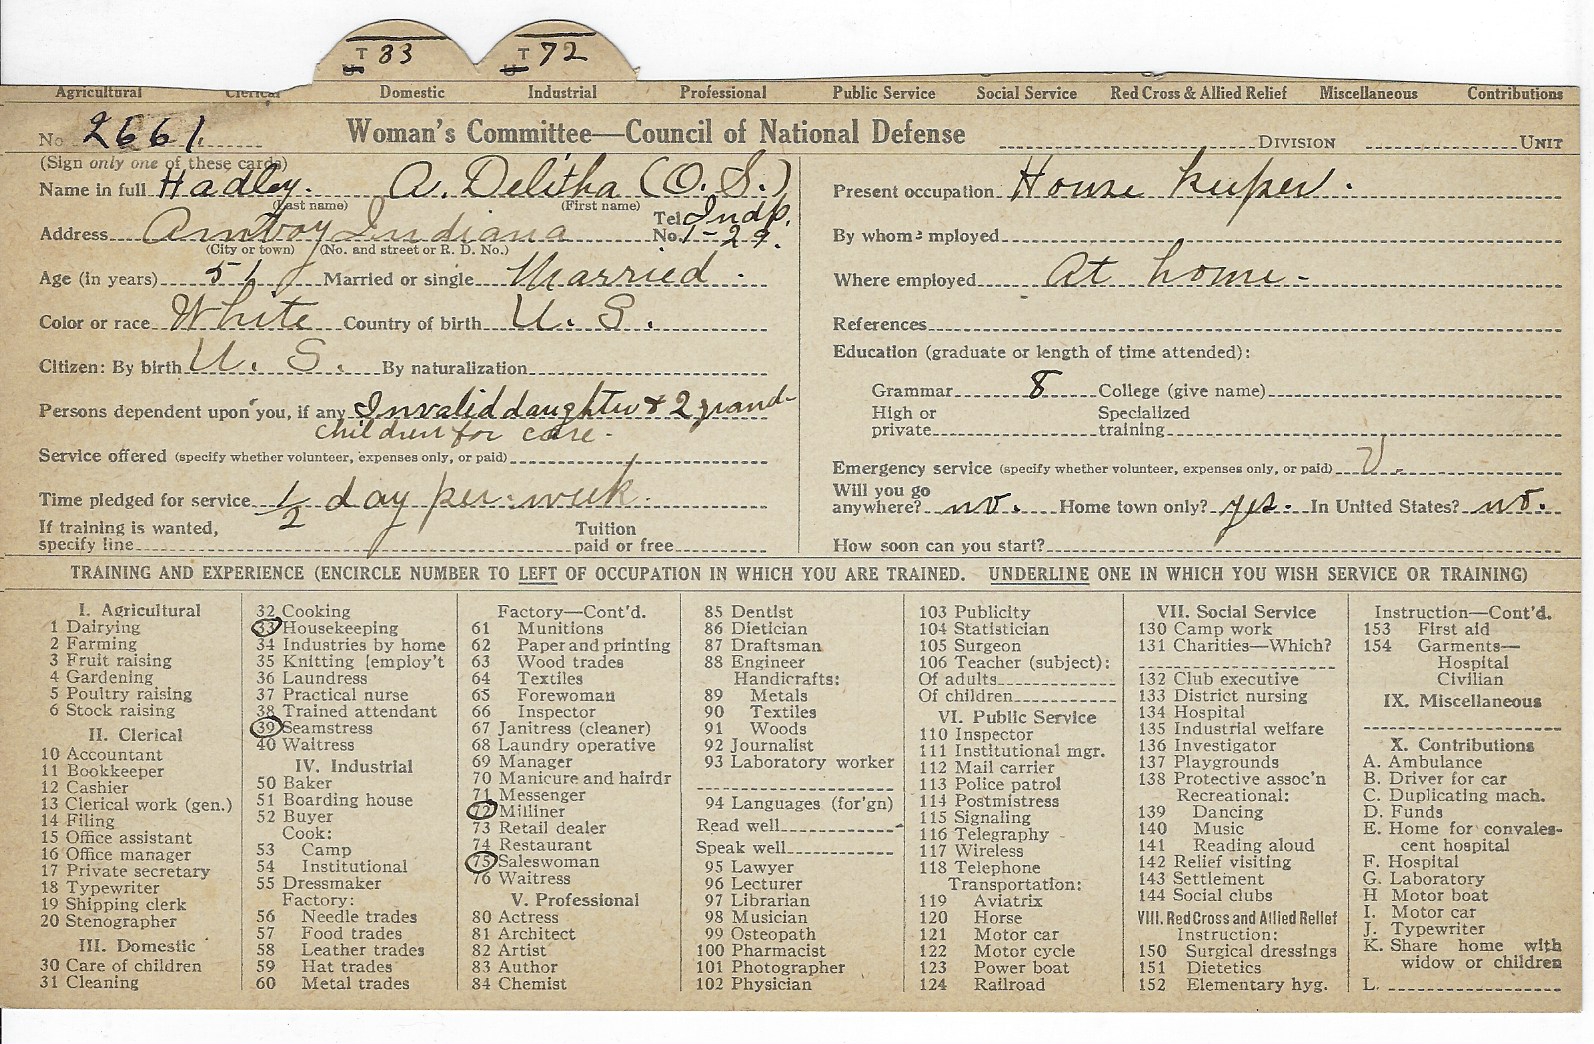 T 33 T 72
U U
Agricultural Clerical Domestic Industrial Professional Public Service Social Service Red Cross & Allied Relief Miscellaneous Contributions
No. 2661 Woman's Committee—Council of National Defense DIVISION UNIT
(Sign only one of these cards)
Name in full Hadley. A. Delitha (O. S.)
(Last name) (First name)
Address Amboy Indiana Tel. No. Indp. 1-29.
(City or town) (No. and street or R. D. No.)
Age (in years) 51 Married or single Married.
Color or race White Country of birth U. S.
Citizen: By birth U. S. By naturalization
Persons dependent upon you, if any Invalid daughter & 2 grand-
children for care.
Service offered (specify whether volunteer, expenses only, or paid)
Time pledged for service 1/2 day per week.
If training is wanted, Tuition
specify line paid or free
Present occupation House keeper.
By whom employed
Where employed At home.
References
Education (graduate or length of time attended):
Grammar 8 College (give name)
High or Specialized
private training
Emergency service (specify whether volunteer, expenses only, or paid) V.
Will you go
anywhere? no. Home town only? yes. In United States? no.
How soon can you start?
TRAINING AND EXPERIENCE (ENCIRCLE NUMBER TO LEFT OF OCCUPATION IN WHICH YOU ARE TRAINED. UNDERLINE ONE IN WHICH YOU WISH SERVICE OR TRAINING)
I. Agricultural
1 Dairying
2 Farming
3 Fruit raising
4 Gardening
5 Poultry raising
6 Stock raising
II. Clerical
10 Accountant
11 Bookkeeper
12 Cashier
13 Clerical work (gen.)
14 Filing
15 Office assistant
16 Office manager
17 Private secretary
18 Typewriter
19 Shipping clerk
20 Stenographer
III. Domestic
30 Care of children
31 Cleaning
32 Cooking
33 Housekeeping
34 Industries by home
35 Knitting [employ't
36 Laundress
37 Practical nurse
38 Trained attendant
39 Seamstress
40 Waitress
IV. Industrial
50 Baker
51 Boarding house
52 Buyer
Cook:
53 Camp
54 Institutional
55 Dressmaker
Factory:
56 Needle trades
57 Food trades
58 Leather trades
59 Hat trades
60 Metal trades
Factory—Cont'd.
61 Munitions
62 Paper and printing
63 Wood trades
64 Textiles
65 Forewoman
66 Inspector
67 Janitress (cleaner)
68 Laundry operative
69 Manager
70 Manicure and hairdr
71 Messenger
72 Milliner
73 Retail dealer
74 Restaurant
75 Saleswoman
76 Waitress
V. Professional
80 Actress
81 Architect
82 Artist
83 Author
84 Chemist
85 Dentist
86 Dietician
87 Draftsman
88 Engineer
Handicrafts:
89 Metals
90 Textiles
91 Woods
92 Journalist
93 Laboratory worker
94 Languages (for'gn)
Read well
Speak well
95 Lawyer
96 Lecturer
97 Librarian
98 Musician
99 Osteopath
100 Pharmacist
101 Photographer
102 Physician
103 Publicity
104 Statistician
105 Surgeon
106 Teacher (subject):
Of adults
Of children
VI. Public Service
110 Inspector
111 Institutional mgr.
112 Mail carrier
113 Police patrol
114 Postmistress
115 Signaling
116 Telegraphy
117 Wireless
118 Telephone
Transportation:
119 Aviatrix
120 Horse
121 Motor car
122 Motor cycle
123 Power boat
124 Railroad
VII. Social Service
130 Camp work
131 Charities—Which?
132 Club executive
133 District nursing
134 Hospital
135 Industrial welfare
136 Investigator
137 Playgrounds
138 Protective assoc'n
Recreational:
139 Dancing
140 Music
141 Reading aloud
142 Relief visiting
143 Settlement
144 Social clubs
VIII. Red Cross and Allied Relief
Instruction:
150 Surgical dressings
151 Dietetics
152 Elementary hyg.
Instruction—Cont'd.
153 First aid
154 Garments—
Hospital
Civilian
IX. Miscellaneous
X. Contributions
A. Ambulance
B. Driver for car
C. Duplicating mach.
D. Funds
E. Home for convales-
cent hospital
F. Hospital
G. Laboratory
H Motor boat
I. Motor car
J. Typewriter
K. Share home with
widow or children
L.